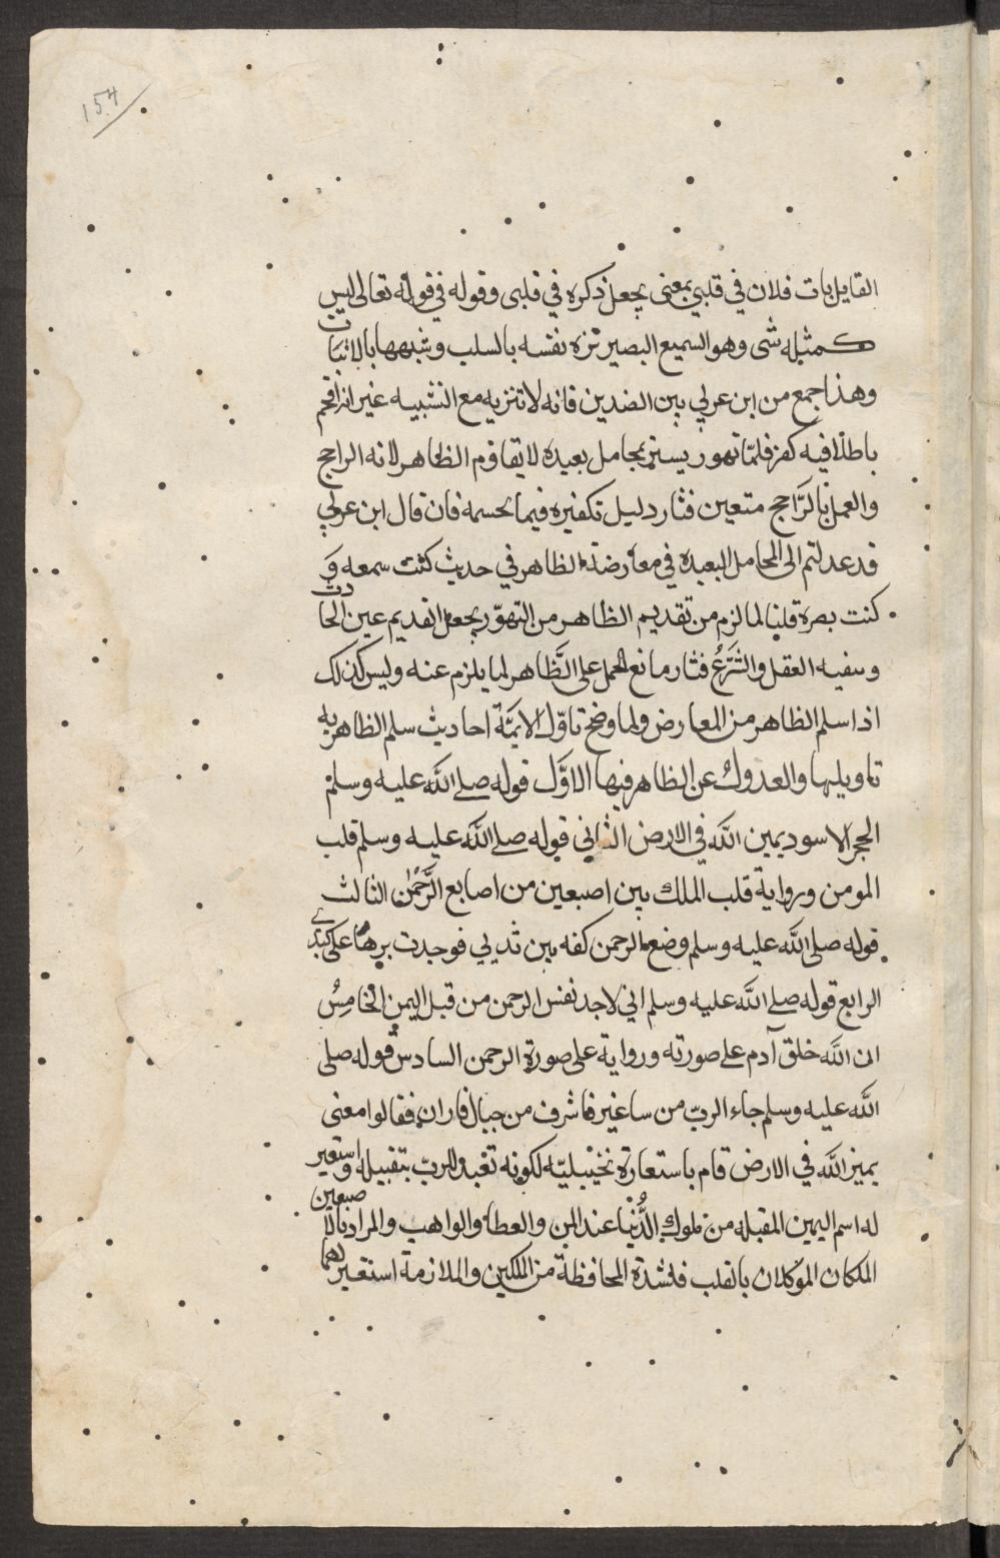 154
القايل بات فلان في قلبي بمعنى يجعل ذكره في قلبى وقوله في قوله تعالى ليس
كمثله شى وهو السميع البصير نزه نفسه بالسلب وشبهها بالاثبات
وهذا جمع من ابن عربي بين الضدين فانه لا تنزيه مع التشبيه غير انه اقحم
باطلا فيه كفر فلما تهور يستتر بمحامل بعيده لا يقاوم الظاهر لانه الراجح
والعمل بالرَّاجح متعين فثار دليل تكفيره فيما يحسمه فان قال ابن عربي
قد عدلتم الى المحامل البعيدة في معارضة الظاهر في حديث كنت سمعه وَ
كنت بصره قلنا لما لزم من تقديم الظاهر من التهوّر بجعل القديم عين الحادث
وينفيه العقل والشَّرعُ فثار مانع الحمل على الظَّاهر لما يلزم عنه وليس كذلك
اذا سلم الظاهر من المعارض ولما وضح تاوّل الايمَّة احاديث سلم الظاهريه
تاويلها والعدول عن الظاهر فيها الاوَّل قوله صلى اللَّه عليه وسلم
الحجر الاسود يمين اللَّه في الارض الثاني قوله صلى اللَّه عليه وسلم قلب
المومن ورواية قلب الملك بين اصبعين من اصابع الرَّحمٰن الثالث
قوله صلى اللَّه عليه وسلم وضع الرحمن كفه بين ثديي فوجدت بردها على كبدي
الرابع قوله صلى اللَّه عليه وسلم اني لاجد نفس الرحمن من قبل اليمن الخامسُ
ان اللَّه خلق آدم على صورته ورواية على صورة الرحمن السادس قوله صلى
اللَّه عليه وسلم جاء الربّ من ساغير فاشرف من جبال فاران فقالوا معنى
يمين اللَّه في الارض قام باستعارة تخييليّه لكونه تعبد والربّ بتقبيله واستعير
له اسم اليمين المقبله من ملوك الدُّنيا عند المن والعطا والواهب والمراد بالاصبعين
الملكان الموكلان بالقلب فلشدة المحافظة من الملكين والملازمة استعير لهما